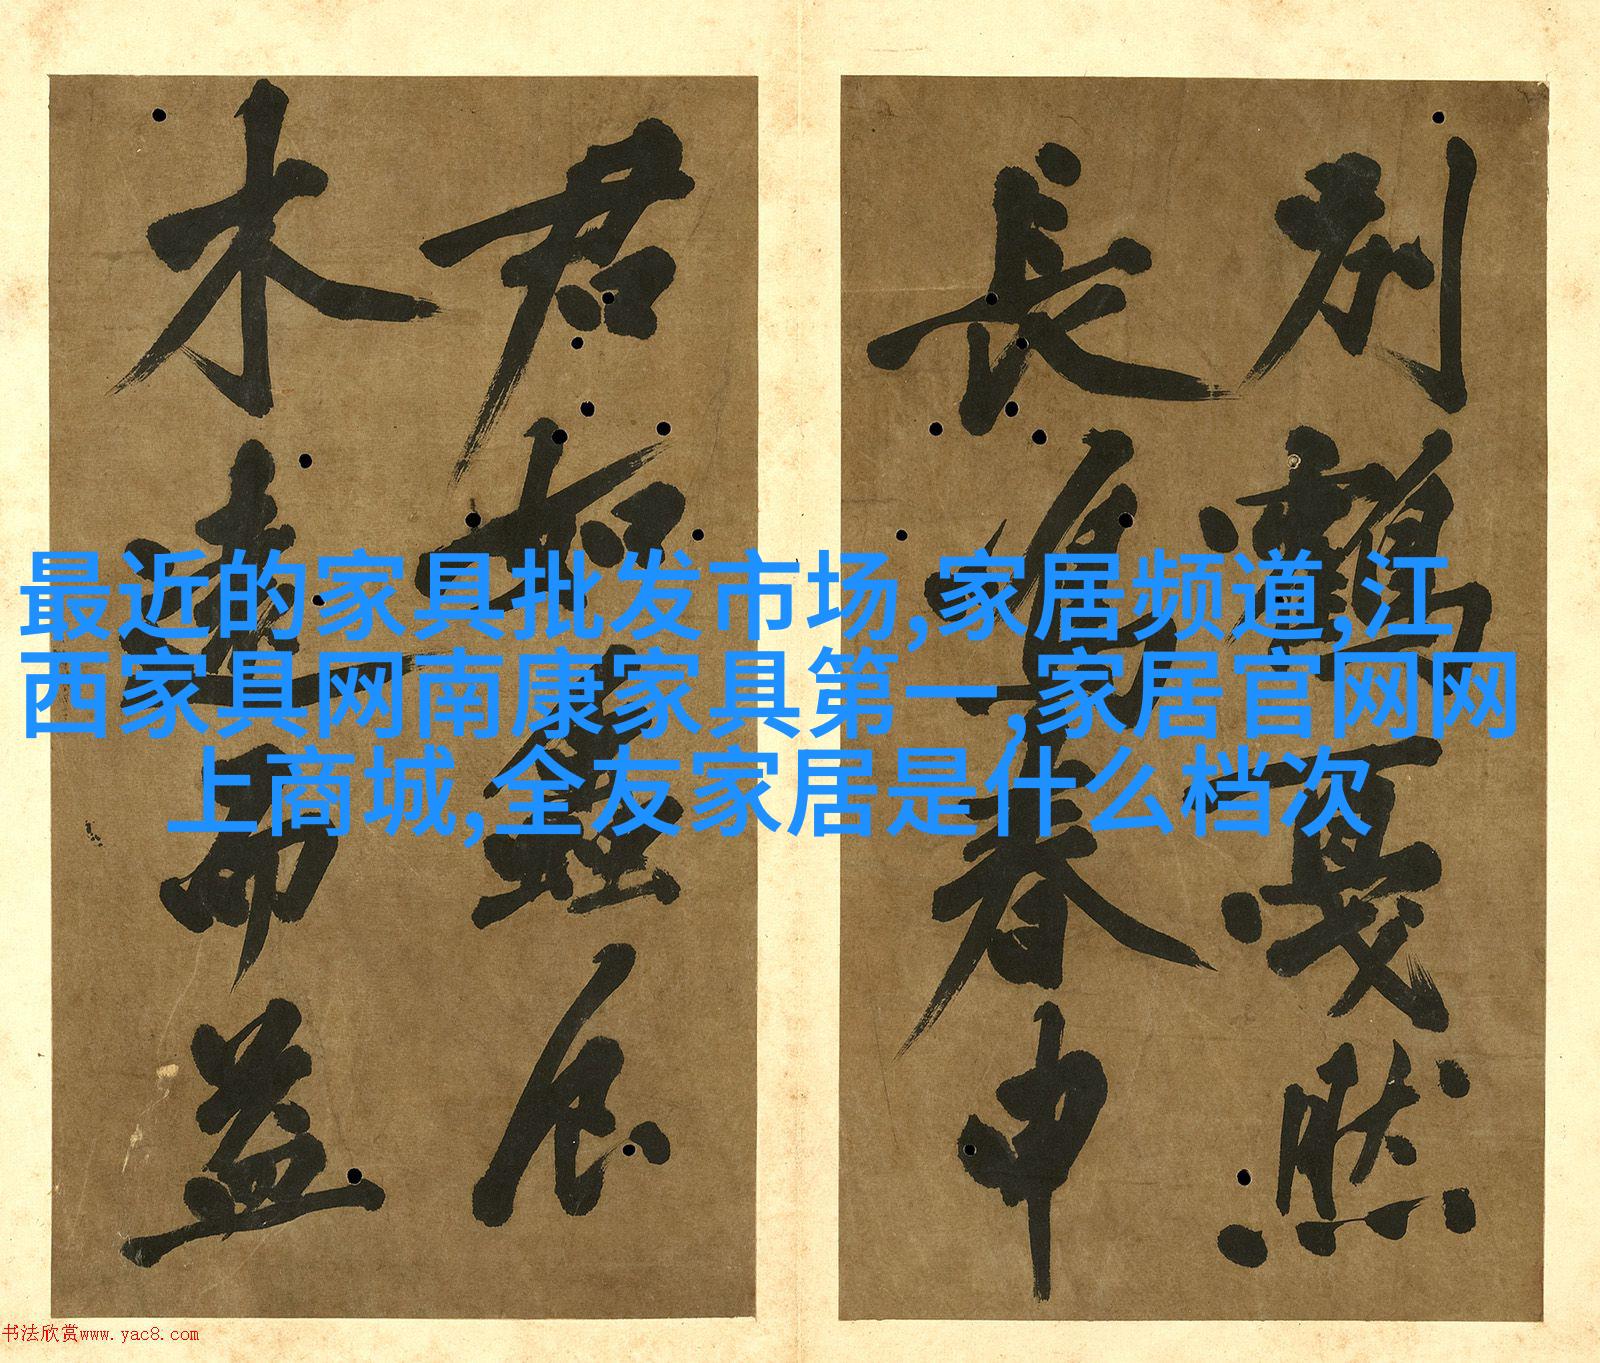 别鶴戛然
長鳴春申
君如
木遠而益
最近的家具批发市场,家居频道,江
西家具网南康家具第一,家居官网网
上商城,全友家居是什么档次
书法欣赏www.yac8.com